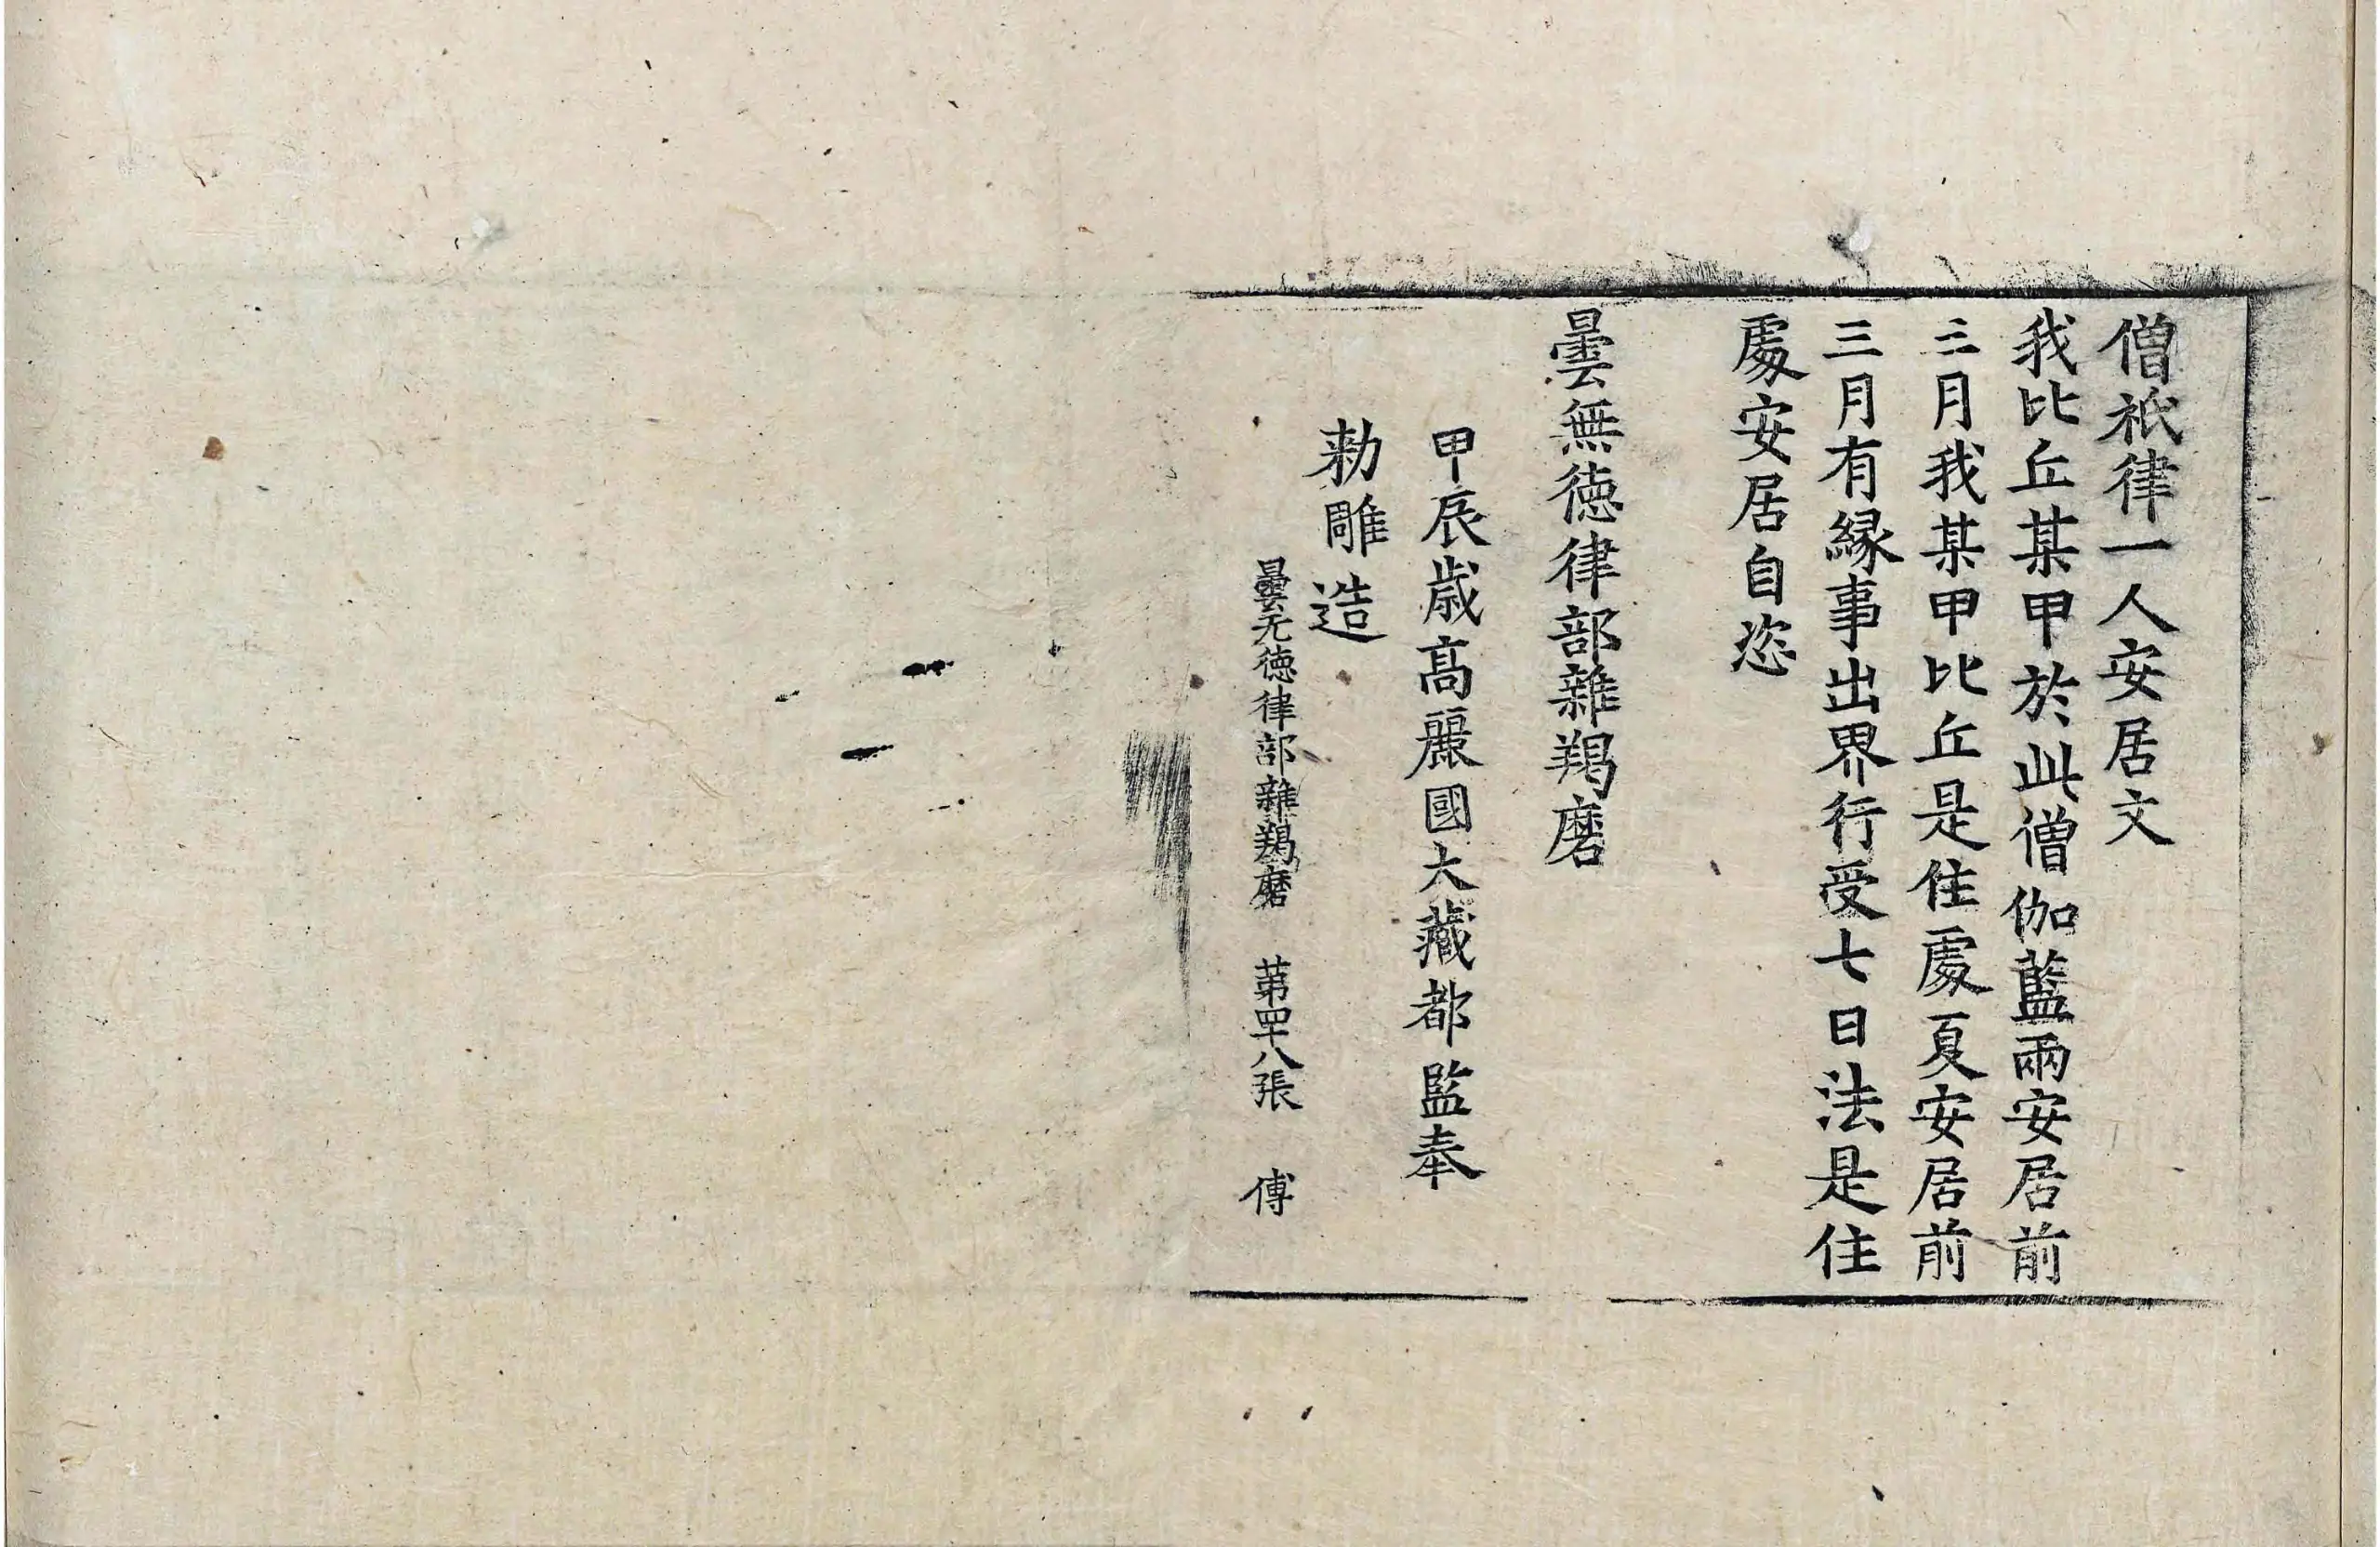 僧祇律一人安居文
我比丘某甲於此僧伽藍兩安居前
三月我某甲比丘是住處夏安居前
三月有緣事出界行受七日法是住
處安居自恣
曇無德律部雜羯磨
甲辰歲高麗國大藏都監奉
勑雕造
曇无德律部雜羯磨 第四十八張 傅